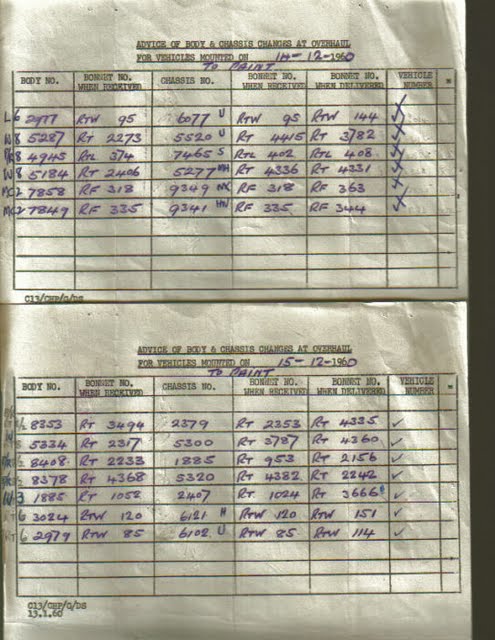 ADVICE OF BODY & CHASSIS CHANGES AT OVERHAUL
FOR VEHICLES MOUNTED ON 14-12-1960
TO PAINT
BODY NO. BONNET NO. WHEN RECEIVED CHASSIS NO. BONNET NO. WHEN RECEIVED BONNET NO. WHEN DELIVERED VEHICLE NUMBER
L6 2977 RTW 95 6077 U RTW 95 RTW 144
W8 5287 RT 2273 5520 U RT 4415 RT 3782
8 4945 RTL 374 7465 S RTL 402 RTL 408
W8 5184 RT 2406 5277 MH RT 4336 RT 4331
MC2 7858 RF 318 9349 RF 318 RF 363
MC2 7849 RF 335 9341 RF 335 RF 344
C13/CHP/G/DS
ADVICE OF BODY & CHASSIS CHANGES AT OVERHAUL
FOR VEHICLES MOUNTED ON 15-12-1960
TO PAINT
BODY NO. BONNET NO. WHEN RECEIVED CHASSIS NO. BONNET NO. WHEN RECEIVED BONNET NO. WHEN DELIVERED VEHICLE NUMBER
8353 RT 3494 2379 RT 2353 RT 4335 ✓
5334 RT 2317 5300 RT 3787 RT 4360 ✓
8408 RT 2233 1885 RT 953 RT 2156 ✓
8378 RT 4368 5320 RT 4382 RT 2242 ✓
3 1885 RT 1052 2407 RT 1024 RT 3666 ✓
6 3024 RTW 120 6121 H RTW 120 RTW 151 ✓
6 2979 RTW 85 6102 U RTW 85 RTW 114 ✓
C13/CHP/G/DS
13.1.60